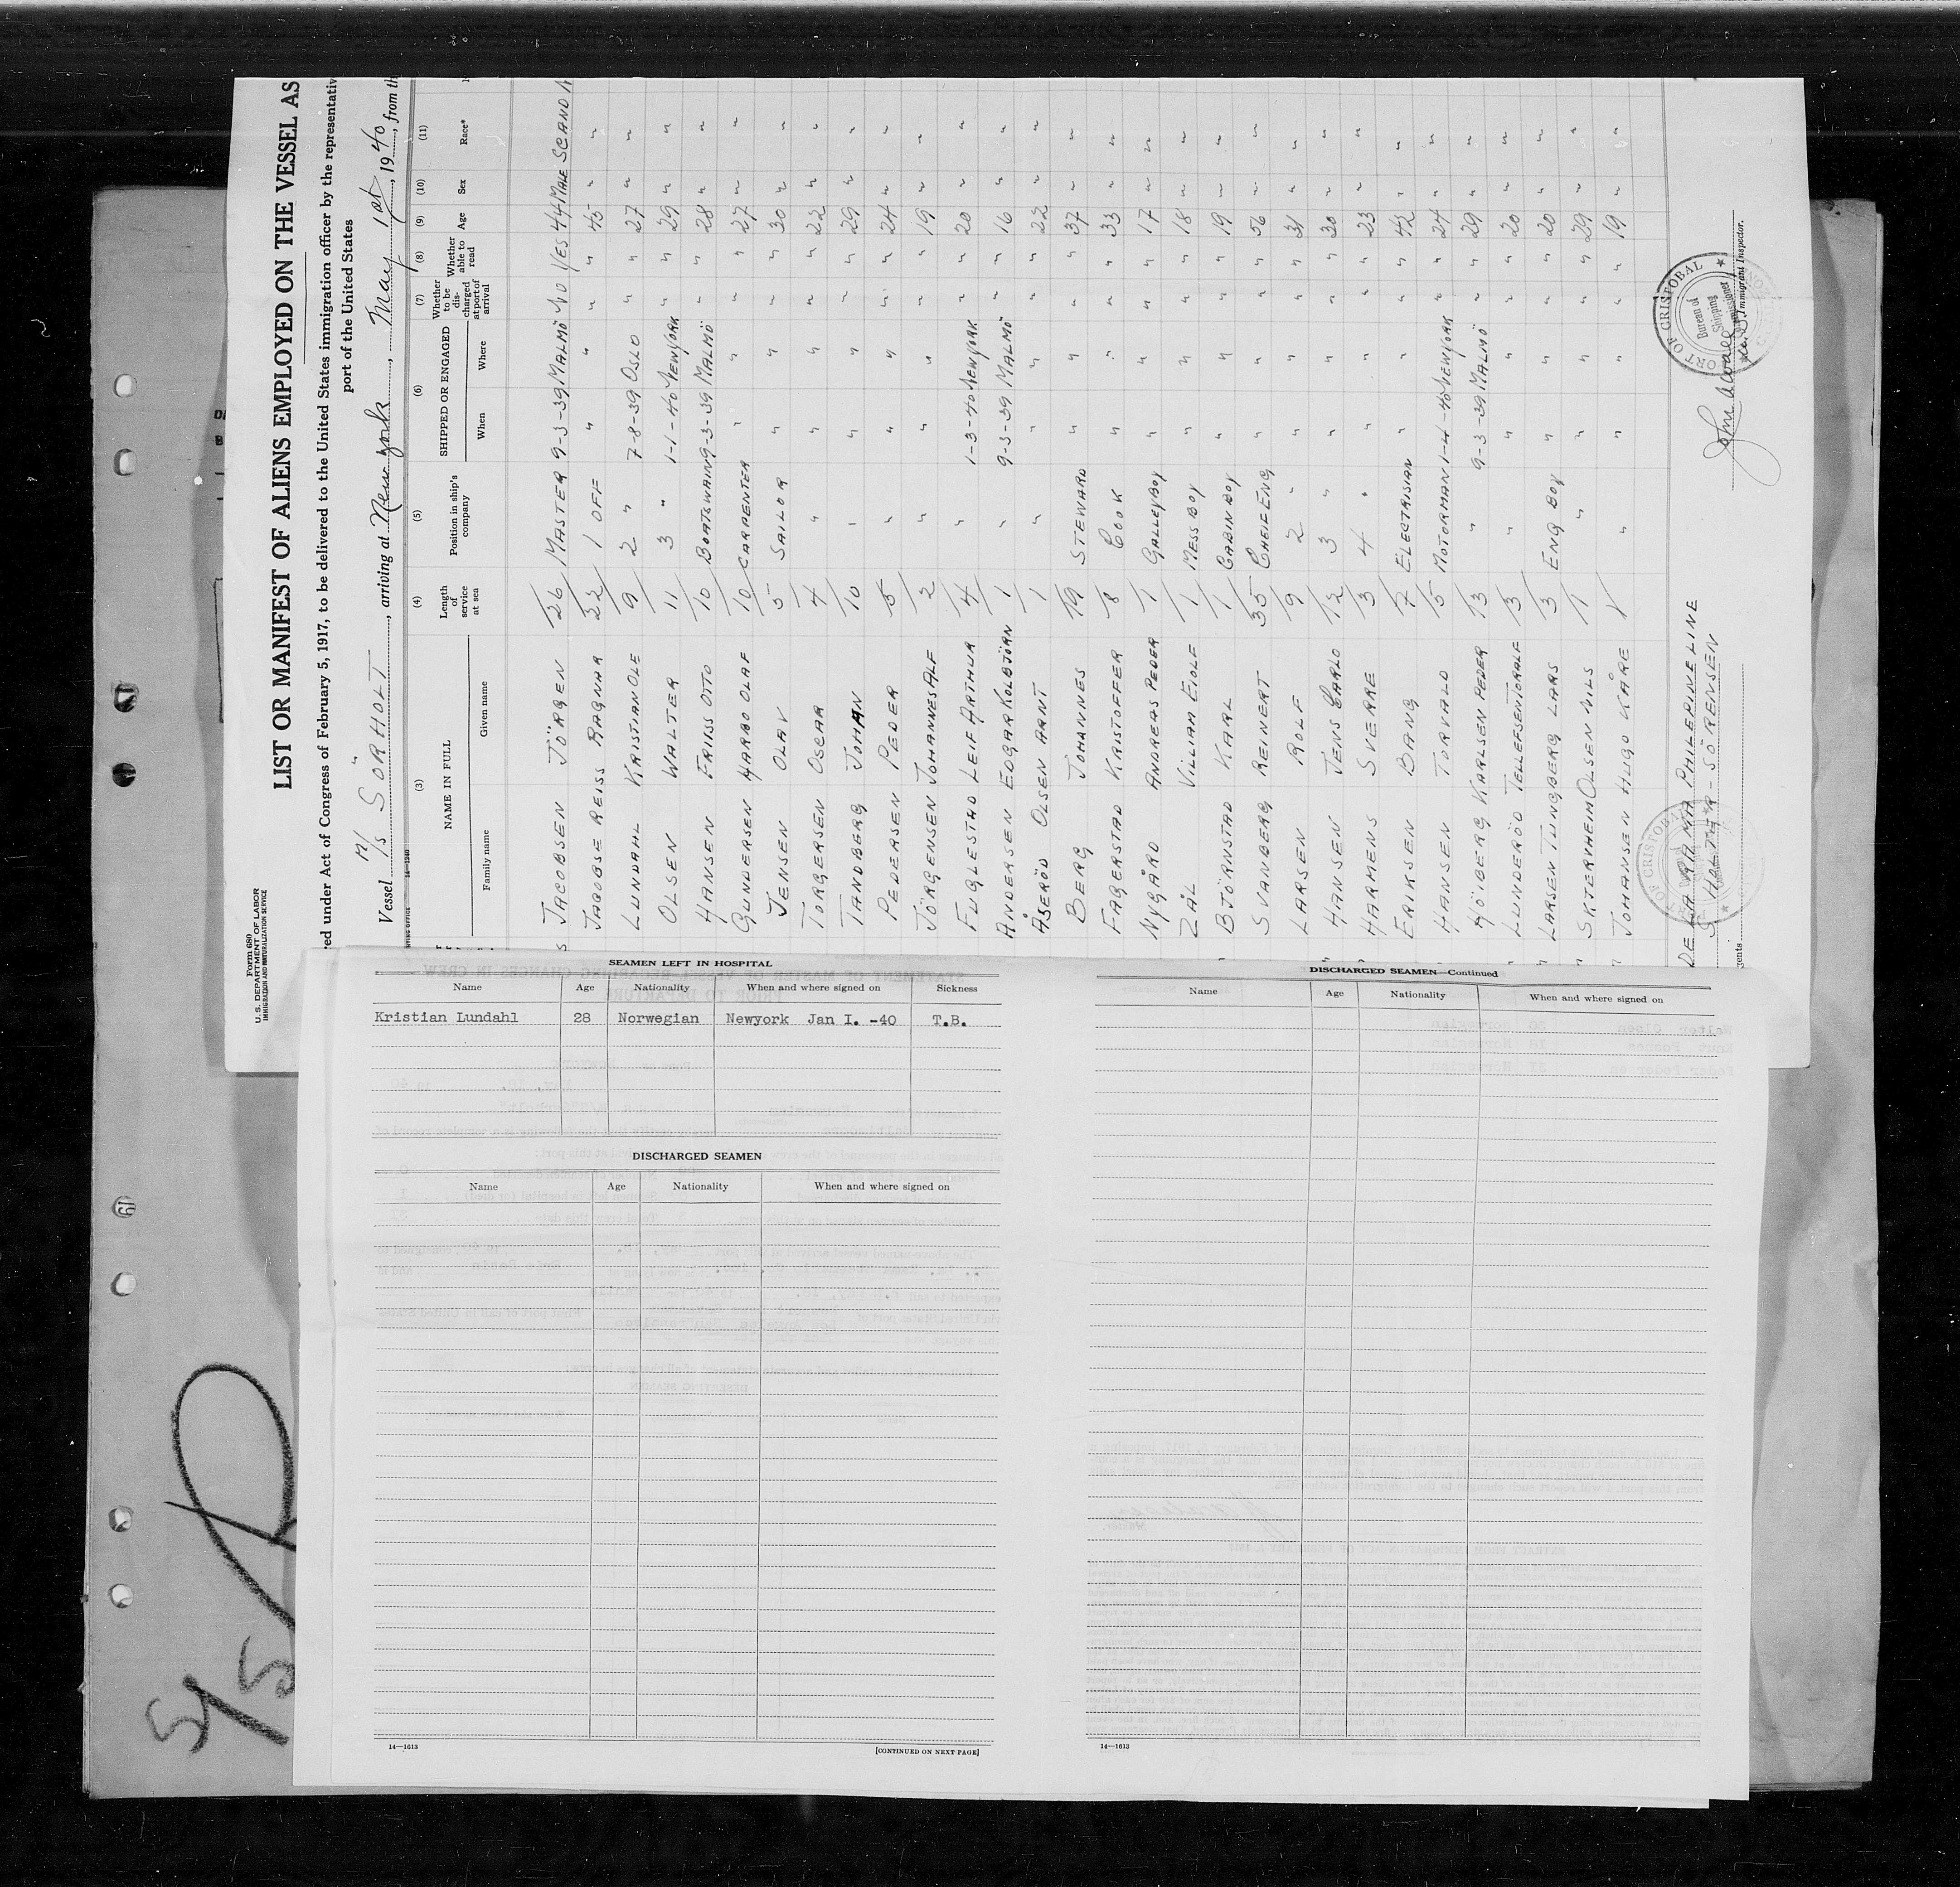 Form 680
U. S. DEPARTMENT OF LABOR
IMMIGRATION AND NATURALIZATION SERVICE
LIST OR MANIFEST OF ALIENS EMPLOYED ON THE VESSEL AS
ed under Act of Congress of February 5, 1917, to be delivered to the United States immigration officer by the representativ
port of the United States
Vessel M/s SÖRHOLT, arriving at New York, May 1st, 1940, from th
(3) (4) (5) (6) (7) (8) (9) (10) (11)
NAME IN FULL Length of service at sea Position in ship's company SHIPPED OR ENGAGED Whether to be discharged at port of arrival Whether able to read Age Sex Race*
Family name Given name When Where
JACOBSEN JÖRGEN 26 MASTER 9-3-39 MALMÖ NO YES 44 MALE SCAND
JACOBSE REISS RAGNAR 22 1 OFF " " " " 45 " "
LUNDAHL KRISTIAN OLE 9 2 " 7-8-39 OSLO " " 27 " "
OLSEN WALTER 11 3 " 1-1-40 NEWYORK " " 29 " "
HANSEN FRIISS OTTO 10 BOATSWAIN 9-3-39 MALMÖ " " 28 " "
GUNDERSEN HARBO OLAF 10 CARPENTER " " " " 27 " "
JENSEN OLAV 5 SAILOR " " " " 30 " "
TORGERSEN OSCAR 4 " " " " " 22 " "
TANDBERG JOHAN 10 " " " " " 29 " "
PEDERSEN PEDER 5 " " " " " 24 " "
JÖRGENSEN JOHANNES ALF 2 " " " " " 19 " "
FUGLESTAD LEIF ARTHUR 4 " 1-3-40 NEWYORK " " 20 " "
ANDERSEN EDGAR KOLBJÖRN 1 " 9-3-39 MALMÖ " " 16 " "
ÅSERÖD OLSEN ARNT 1 " " " " " 22 " "
BERG JOHANNES 19 STEWARD " " " " 37 " "
FAGERSTAD KRISTOFFER 8 COOK " " " " 33 " "
NYGÅRD ANDREAS PEDER 1 GALLEYBOY " " " " 17 " "
ZÅL VILLIAM EIOLF 1 MESS BOY " " " " 18 " "
BJÖRNSTAD KARL 1 CABIN BOY " " " " 19 " "
SVANBERG REINERT 35 CHEIF ENG " " " " 56 " "
LARSEN ROLF 9 2 " " " " " 31 " "
HANSEN JENS CARLO 12 3 " " " " " 30 " "
HARMENS SVERRE 3 4 " " " " " 23 " "
ERIKSEN BANG 7 ELECTRISIAN " " " " 42 " "
HANSEN TORVALD 5 MOTORMAN 1-4-40 NEWYORK " " 24 " "
HÖIBERG KARLSEN PEDER 13 " 9-3-39 MALMÖ " " 29 " "
LUNDERÖD TELLEFSEN TORALF 3 " " " " " 20 " "
LARSEN TUNGBERG LARS 3 ENG BOY " " " " 20 " "
SKTERVHEIM OLSEN NILS 1 " " " " " 29 " "
JOHANSEN HUGO KÅRE 1 " " " " " 19 " "
DE LA RAMA PHILEPINE LINE
S. HOLTER-SÖRENSEN
gents
PORT OF CRISTOBAL
Bureau of Shipping Commissioner
Immigrant Inspector.
SEAMEN LEFT IN HOSPITAL
Name Age Nationality When and where signed on Sickness
Kristian Lundahl 28 Norwegian Newyork Jan I. -40 T.B.
DISCHARGED SEAMEN
Name Age Nationality When and where signed on
14—1613
[CONTINUED ON NEXT PAGE]
DISCHARGED SEAMEN—Continued
Name Age Nationality When and where signed on
14—1613
5/5